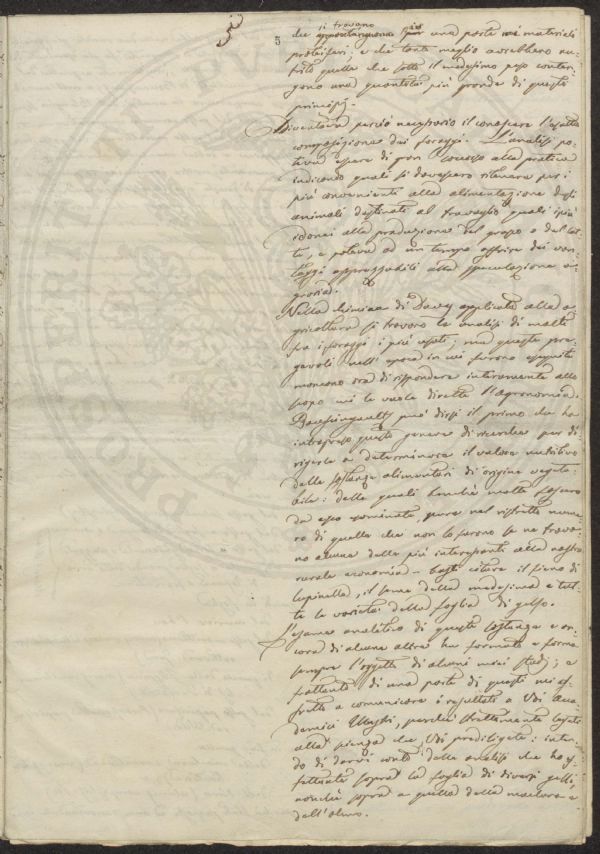 si trovano
5
da una parte nei materiali
proteiferi: e che tanto meglio avrebbero nu-
trito quelle che sotto il medesimo peso conten-
gono una quantità più grande di questi
principj.
Diventava perciò necessario il conoscere l'esatta
composizione dei foraggi. L'analisi po-
teva essere di gran soccorso alla pratica
indicando quali si dovessero ritenere per i
più convenienti alla alimentazione degli
animali destinati al travaglio quali i più
idonei alla produzione del grasso o del lat-
te, e poteva ad un tempo offrire dei van-
taggi apprezzabili alla speculazione a-
graria.
Nella chimica di Davy applicata alla a-
gricoltura si trovano le analisi di molti
fra i foraggi i più usati; ma queste pre-
gevoli nell'epoca in cui furono eseguite
mancano ora di rispondere interamente allo
scopo cui le vuole dirette l'Agronomia.
Boussingault può dirsi il primo che ha
intrapreso questo genere di ricerche per di-
rigerle a determinare il valore nutritivo
delle sostanze alimentari di origine vegeta-
bile: delle quali benchè molte fossero
da esso esaminate, pure nel ristretto nume-
ro di quelle che non lo furono se ne trova-
no alcune delle più interessanti alla nostra
rurale economia - basti citare il fieno di
lupinella, il seme della medesima e tut-
te le varietà della foglia di gelso.
L'esame analitico di queste sostanze e an-
cora di alcune altre ha formato e forma
sempre l'oggetto di alcuni miei studj; e
frattanto di una parte di questi mi af-
fretto a comunicare i resultati a Voi Acca-
demici perchè strettamente legati
alla scienza che Voi prediligete: inten-
do di darvi conto delle analisi che ho ef-
fettuate sopra la foglia di diversi gelsi
nonchè sopra a quella della maclura e
dell'olmo.